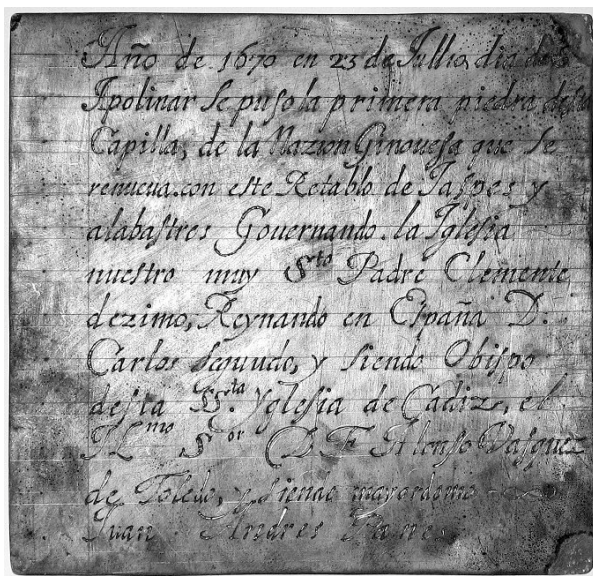 Año de 1670 en 23 de Jullio, dia de S
Ipolinar Se puso la primera piedra desta
Capilla, de la Nazion Ginouesa que se
renueua.con este Retablo de Jaspes y
alabastres Gouernando.la Iglesia
nuestro muy Sto Padre Clemente
dezimo, Reynando en España D.
Carlos Segundo, y siendo Obispo
desta S.ta Yglesia de Cadiz, el
Illmo Sor D. F. Alonso Vasquez
de Toledo, y siendo mayordomo
Juan Andres